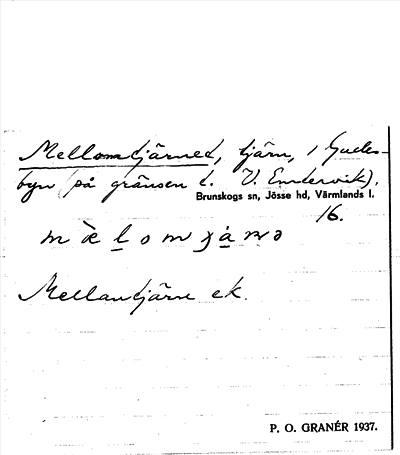 Mellomtjärnet, tjärn, i Gudes-
byn (på gränsen t. V. Endervik).
Brunskogs sn, Jösse hd, Värmlands l.
16.
Mellantjärn ek.
P. O. GRANÉR 1937.